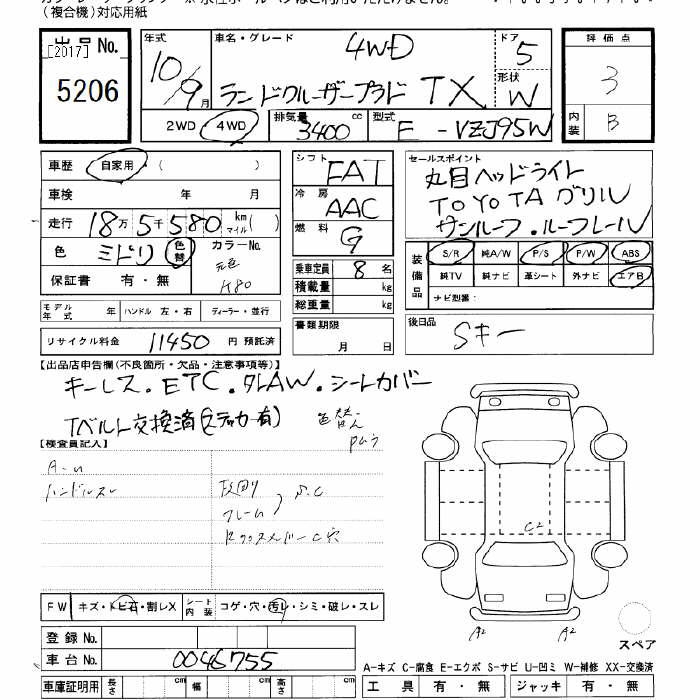 （複合機）対応用紙
出品No.
[2017]
5206
年式
10/9月
車名・グレード
4WD
ランドクルーザープラド TX
ドア
5
形状
W
2WD 4WD
排気量 3400 cc
型式 E - VZJ95W
評価点
3
内装
B
車歴 自家用・（ ）
車検 年 月
走行 18万5千580 km マイル( )
色 ミドリ 色替
カラーNo.
元色
K80
保証書 有・無
モデル年式 年 ハンドル 左・右 ディーラー・並行
リサイクル料金 11450 円 預託済
シフト
FAT
冷房
AAC
燃料
G
乗車定員 8 名
積載量 kg
総重量 kg
書類期限
月 日
セールスポイント
丸目ヘッドライト
TOYOTAグリル
サンルーフ・ルーフレール
装備品
S/R 純A/W P/S P/W ABS
純TV 純ナビ 革シート 外ナビ エアB
ナビ型番：
後日品
Sキー
【出品店申告欄(不良箇所・欠品・注意事項等)】
キーレス・ETC・外AW・シートカバー
Tベルト交換済(ステッカー有)
色替
【検査員記入】
A-u
ハンドルスレ
下回り
フレーム
S.C
C穴
C2
A2
A2
スペア
FW キズ・トビ石・割レX シート内装 コゲ・穴・汚レ・シミ・破レ・スレ
登録No.
車台No. 0046755
A-キズ C-腐食 E-エクボ S-サビ U-凹ミ W-補修 XX-交換済
車庫証明用 長さ cm 幅 cm 高さ cm
工具 有・無 ジャッキ 有・無